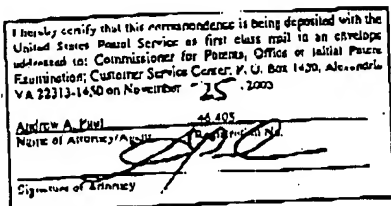 I hereby certify that this correspondence is being deposited with the
United States Postal Service as first class mail in an envelope
addressed to: Commissioner for Patents, Office of Initial Patent
Examination; Customer Service Center, P. O. Box 1450, Alexandria
VA 22313-1450 on November 25, 2003
Andrew A.
46,405
Name of Attorney/Agent
Registration No.
Signature of Attorney